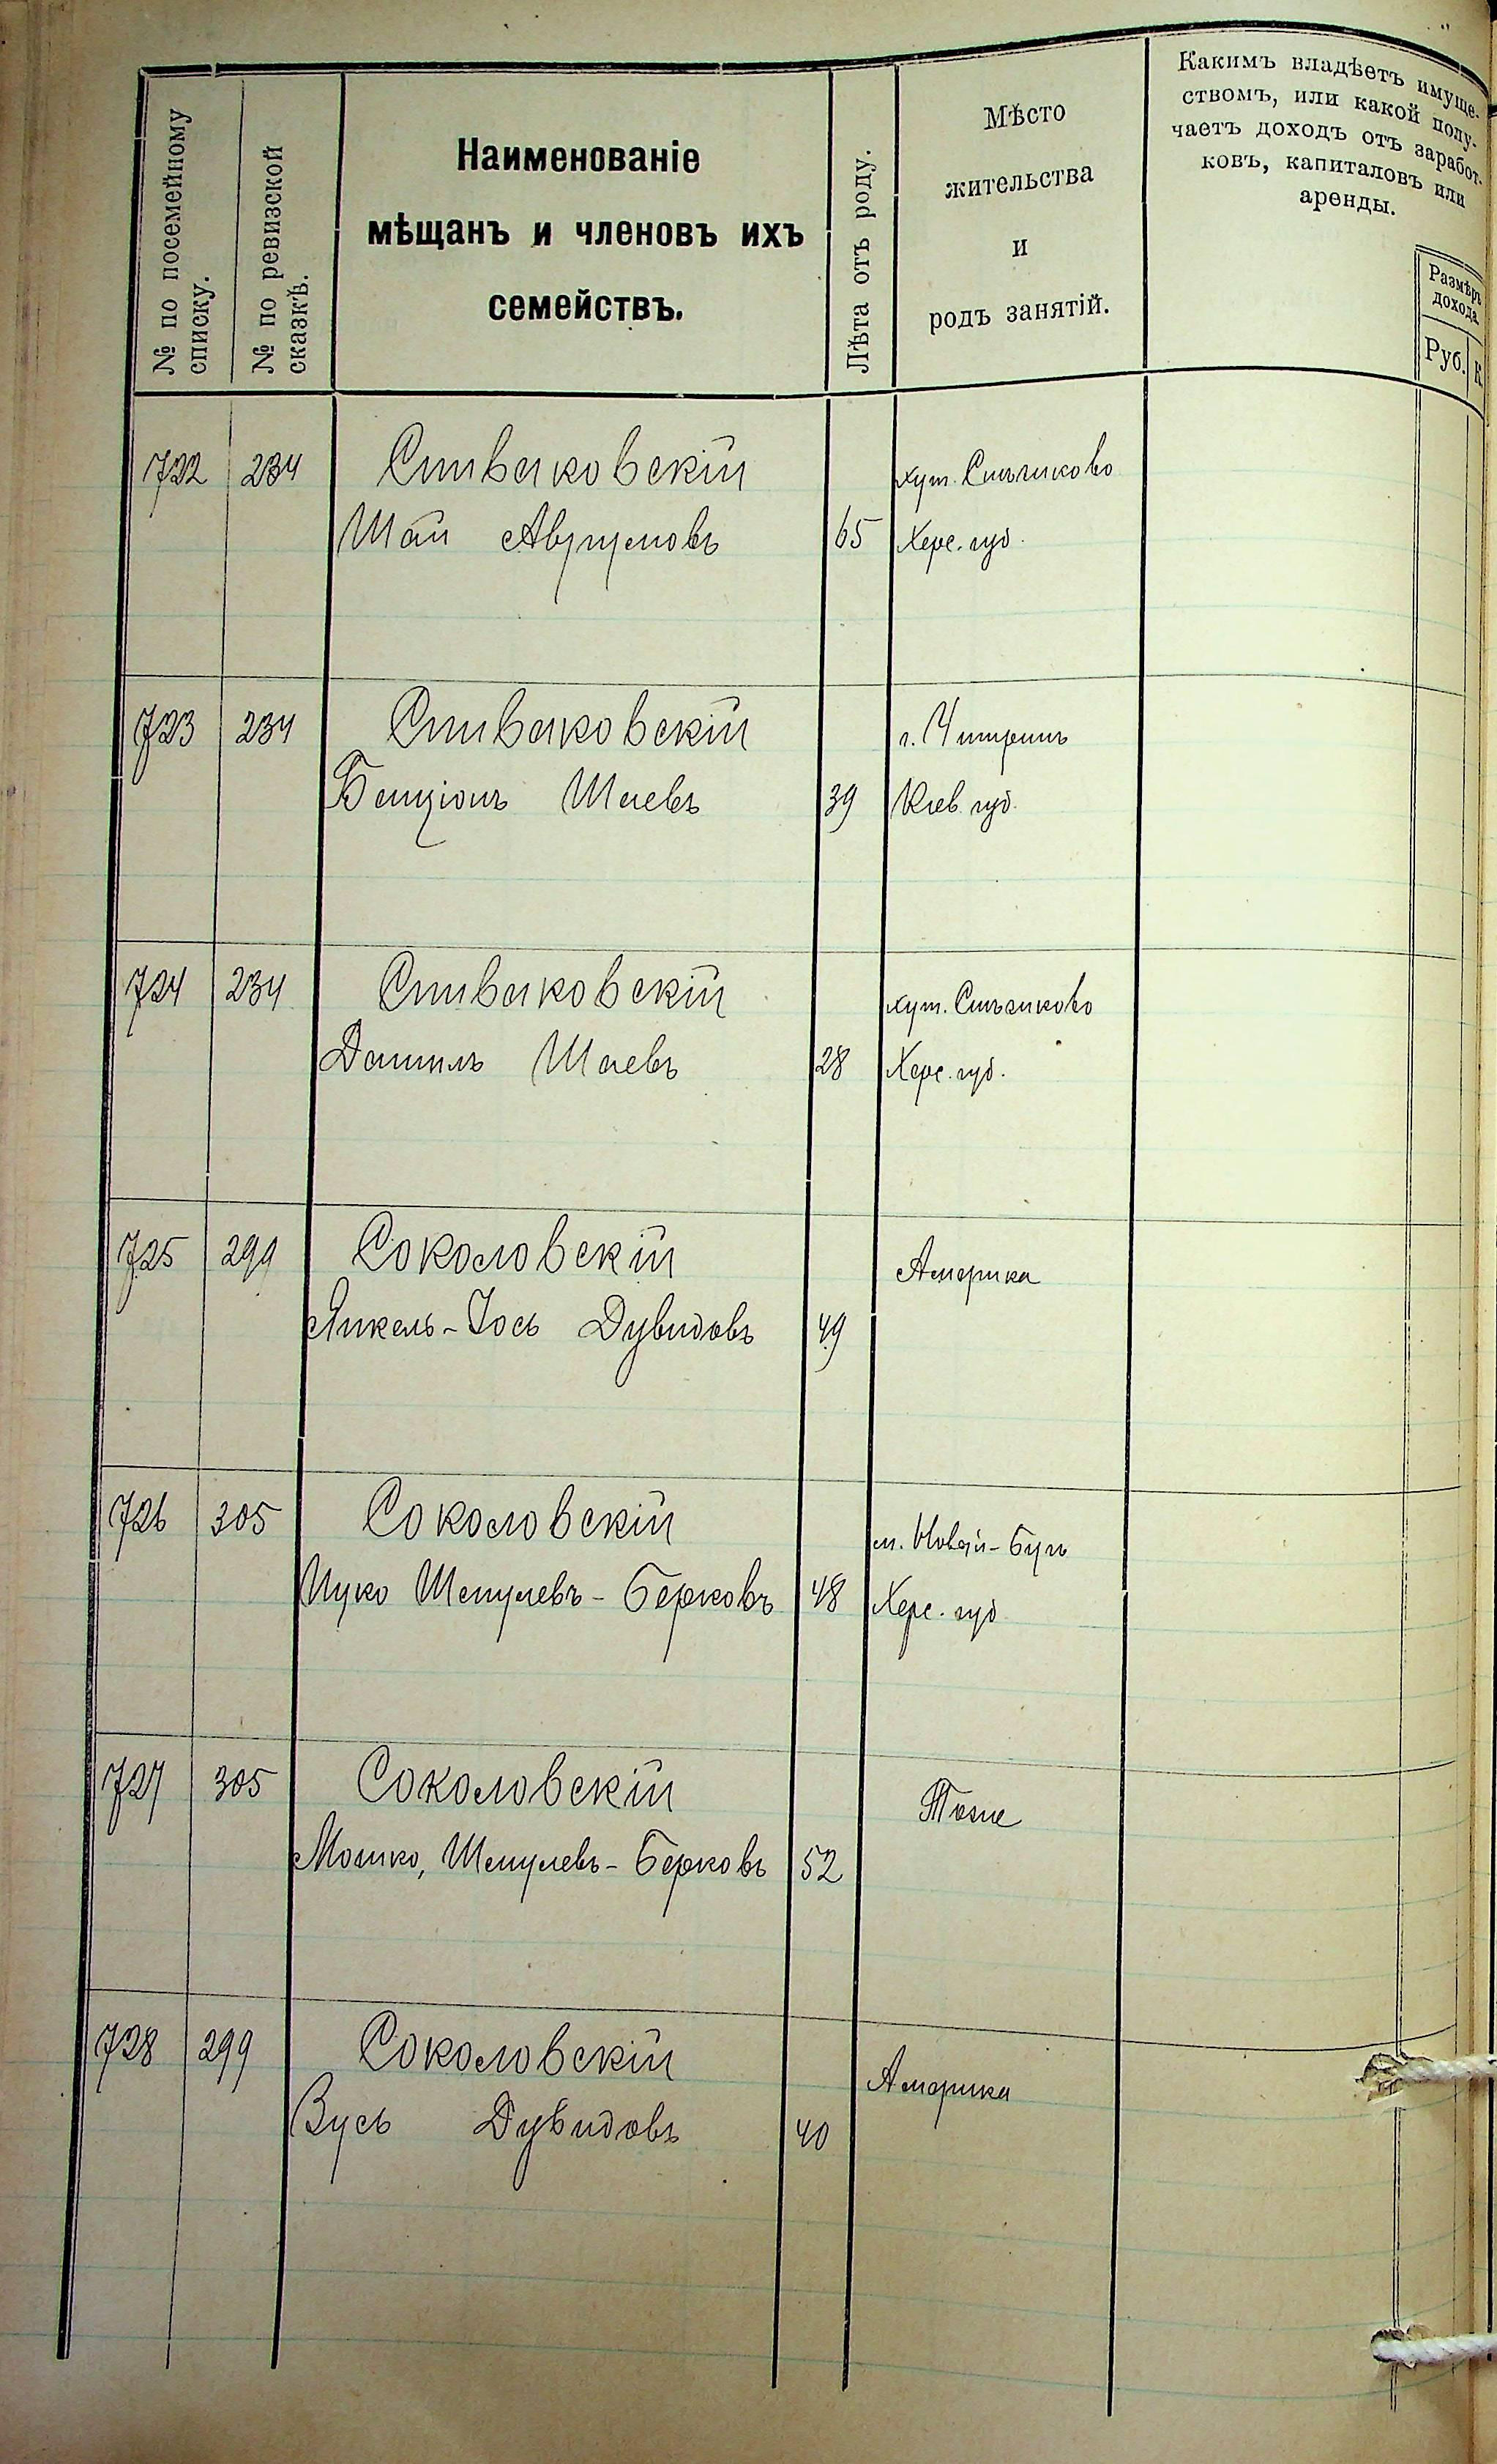 № по посемейному
списку.
№ по ревизской
сказкѣ.
Наименованіе
мѣщанъ и членовъ ихъ
семействъ.
Лѣта отъ роду.
Мѣсто
жительства
и
родъ занятій.
Какимъ владѣетъ имуще-
ствомъ, или какой полу-
чаетъ доходъ отъ заработ-
ковъ, капиталовъ или
аренды.
Размѣръ
дохода.
Руб. К
722 234 Спиваковскій хут.
Шая 65 Херс. губ.
723 234 Спиваковскій г. Чигиринъ
Бенціонъ Шаевъ 39 Кіев. губ.
724 234 Спиваковскій хут.
Даніилъ Шаевъ 28 Херс. губ.
725 299 Соколовскій Америка
Янкель-Іось Дувидовъ 49
726 305 Соколовскій м. Новый-Бугъ
Ицко Шмулевъ-Берковъ 48 Херс. губ
727 305 Соколовскій Тоже
Мошко, Шмулевъ-Берковъ 52
728 299 Соколовскій Америка
Зусь Дувидовъ 40